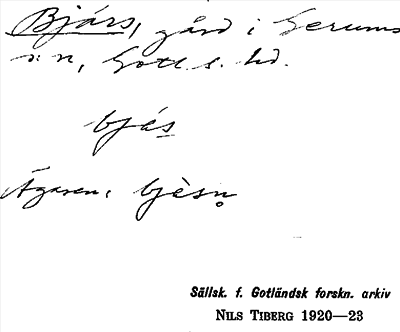 Bjärs, gård i Gerums
s:n, Gotl. s. hd.
bjä́s
Ägaren: bjèsn̥
Sällsk. f. Gotländsk forskn. arkiv
NILS TIBERG 1920—23